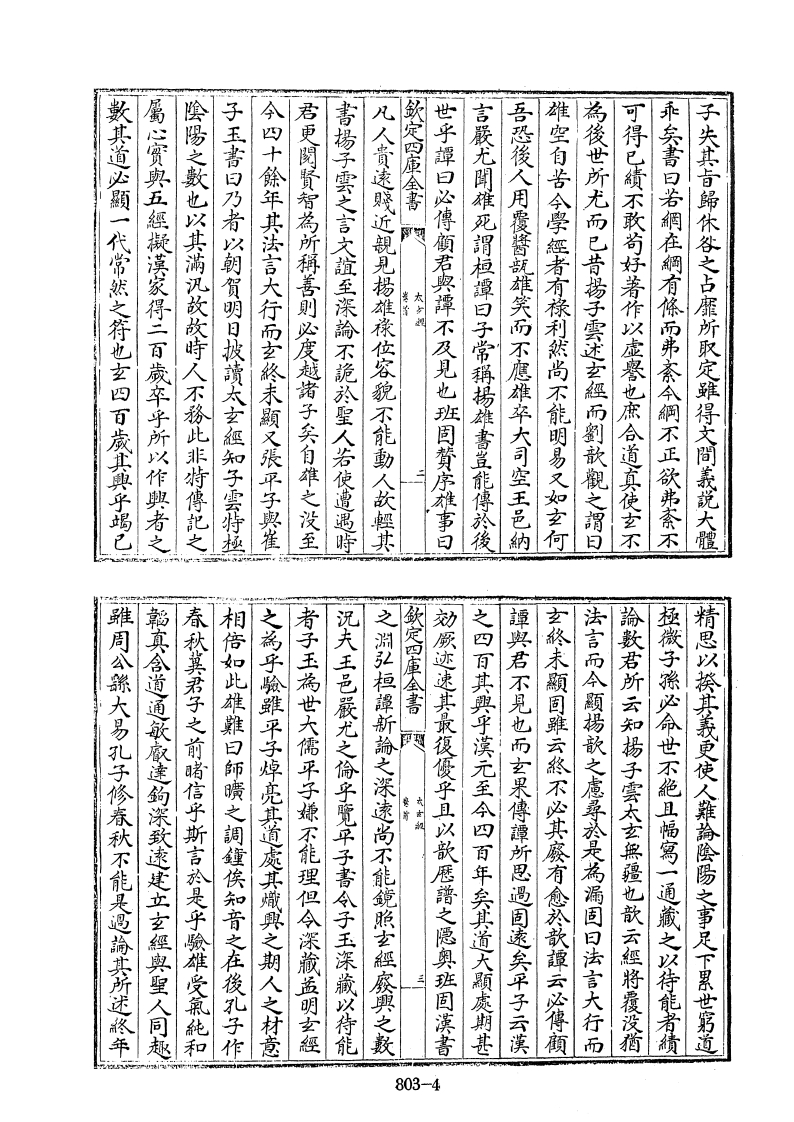 子失其旨歸休咎之占靡所取定雖得文間義說大體
乖矣書曰若網在綱有條而弗紊今綱不正欲弗紊不
可得已績不敢苟好著作以虛譽也庶合道真使玄不
為後世所尤而已昔揚子雲述玄經而劉歆觀之謂曰
雄空自苦今學經者有祿利然尚不能明易又如玄何
吾恐後人用覆醬瓿雄笑而不應雄卒大司空王邑納
言嚴尤聞雄死謂桓譚曰子常稱揚雄書豈能傳於後
世乎譚曰必傳顧君與譚不及見也班固贊序雄事曰
欽定四庫全書
太玄經
卷首
二
凡人貴遠賤近親見揚雄祿位容貌不能動人故輕其
書揚子雲之言文誼至深論不詭於聖人若使遭遇時
君更閱賢智為所稱善則必度越諸子矣自雄之沒至
今四十餘年其法言大行而玄終未顯又張平子與崔
子玉書曰乃者以朝賀明日披讀太玄經知子雲特極
陰陽之數也以其滿汎故故時人不務此非特傳記之
屬心實與五經擬漢家得二百歲卒乎所以作興者之
數其道必顯一代常然之符也玄四百歲其興乎竭已
精思以揆其義更使人難論陰陽之事足下累世窮道
極微子孫必命世不絶且幅寫一通藏之以待能者績
論數君所云知揚子雲太玄無疆也歆云經將覆沒猶
法言而今顯揚歆之慮尋於是為漏固曰法言大行而
玄終未顯固雖云終不必其廢有愈於歆譚云必傳顧
譚與君不見也而玄果傳譚所思過固遠矣平子云漢
之四百其興乎漢元至今四百年矣其道大顯處期甚
効厥迹速其最復優乎且以歆厯譜之隱奥班固漢書
欽定四庫全書
太玄經
卷首
三
之淵弘桓譚新論之深遠尚不能鏡照玄經廢興之數
況夫王邑嚴尤之倫乎覽平子書令子玉深藏以待能
者子玉為世大儒平子嫌不能理但令深藏益明玄經
之為乎驗雖平子焯亮其道處其熾興之期人之材意
相倍如此雄難曰師曠之調鐘俟知音之在後孔子作
春秋冀君子之前睹信乎斯言於是乎驗雄受氣純和
韜真含道通敏叡達鉤深致遠建立玄經與聖人同趣
雖周公繇大易孔子修春秋不能是過論其所述終年
803-4